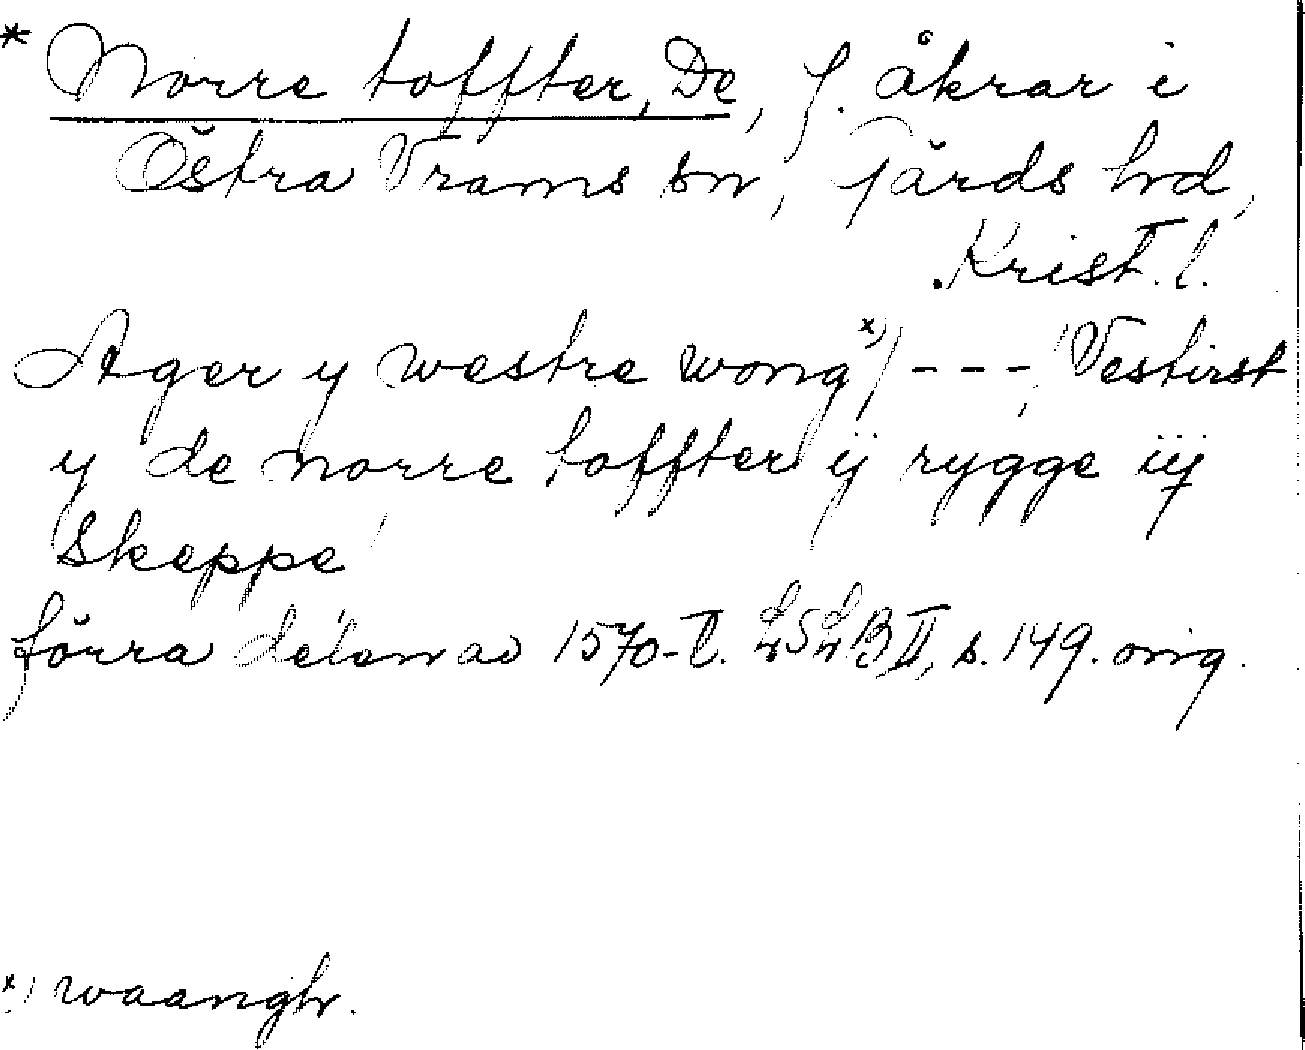 * Norre toffter, De, f. åkrar i
Östra Vrams sn, Gärds hd,
Krist. l.
Ager y westre wong x) / - - - / Vestirst
y de norre toffter ij rygge iij
Skeppe /
förra delen av 1570-t. LSLB II, s. 149. orig.
x) waangh.